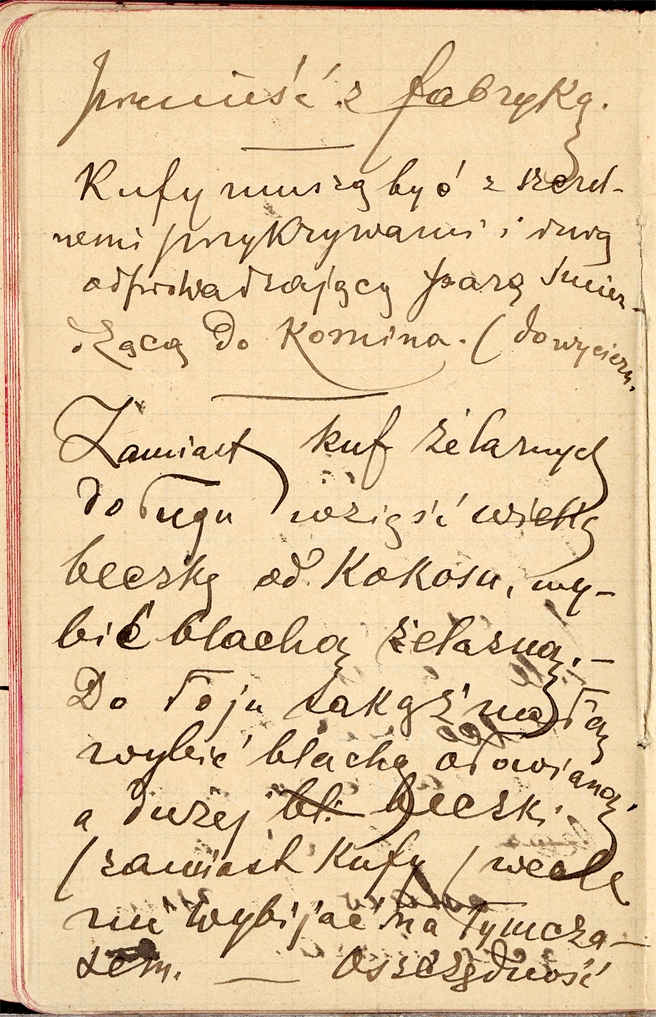 przenieść z fabryką.
Kufy muszą być z szczel-
nemi przykrywami i
odprowadzającą parę śmier-
dzącą do Komina. (do wycierz.
Zamiast kuf żelaznych
do ługu wziąść wielką
beczkę od Kokosu, wy-
bić blachą żelazną. –
Do łoju także małą
wybić blachą ołowianą,
a dużej beczki
(zamiast Kufy) wcale
nie wybijać na tymcza-
sem. — Oszczędność